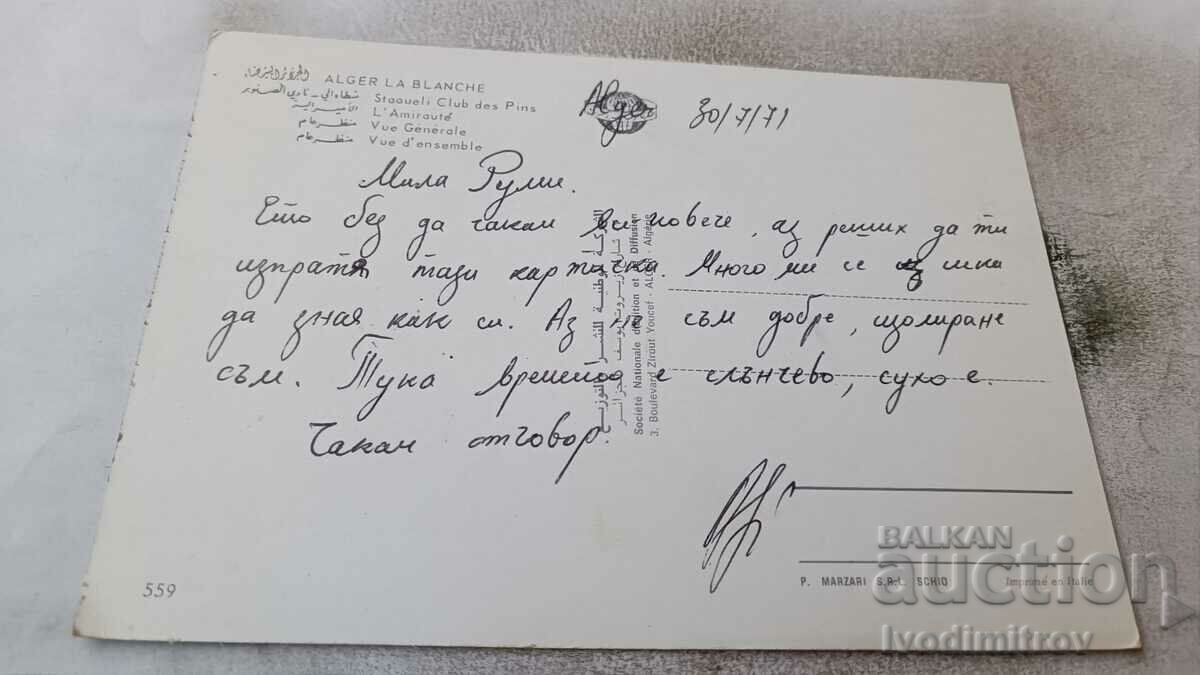 الجزائر البيضاء ALGER LA BLANCHE
سطاوالي - نادي الصنوبر Staoueli Club des Pins
الأميرالية L'Amirauté
منظر عام Vue Générale
منظر عام Vue d'ensemble
Alger 30/7/71
Мила Руми.
Ето без да чакам повече, аз реших да ти
изпратя тази картичка. Много ми се иска
да зная как си. Аз съм добре, щолиране
съм. Тука времето е слънчево, сухо е.
Чакам отговор.
Société Nationale d'Edition et de Diffusion
3, Boulevard Zirout Youcef - ALGER - Algérie
559
P. MARZARI S.R.L. SCHIO Imprimé en Italie
BALKAN
auction
Ivodimitrov